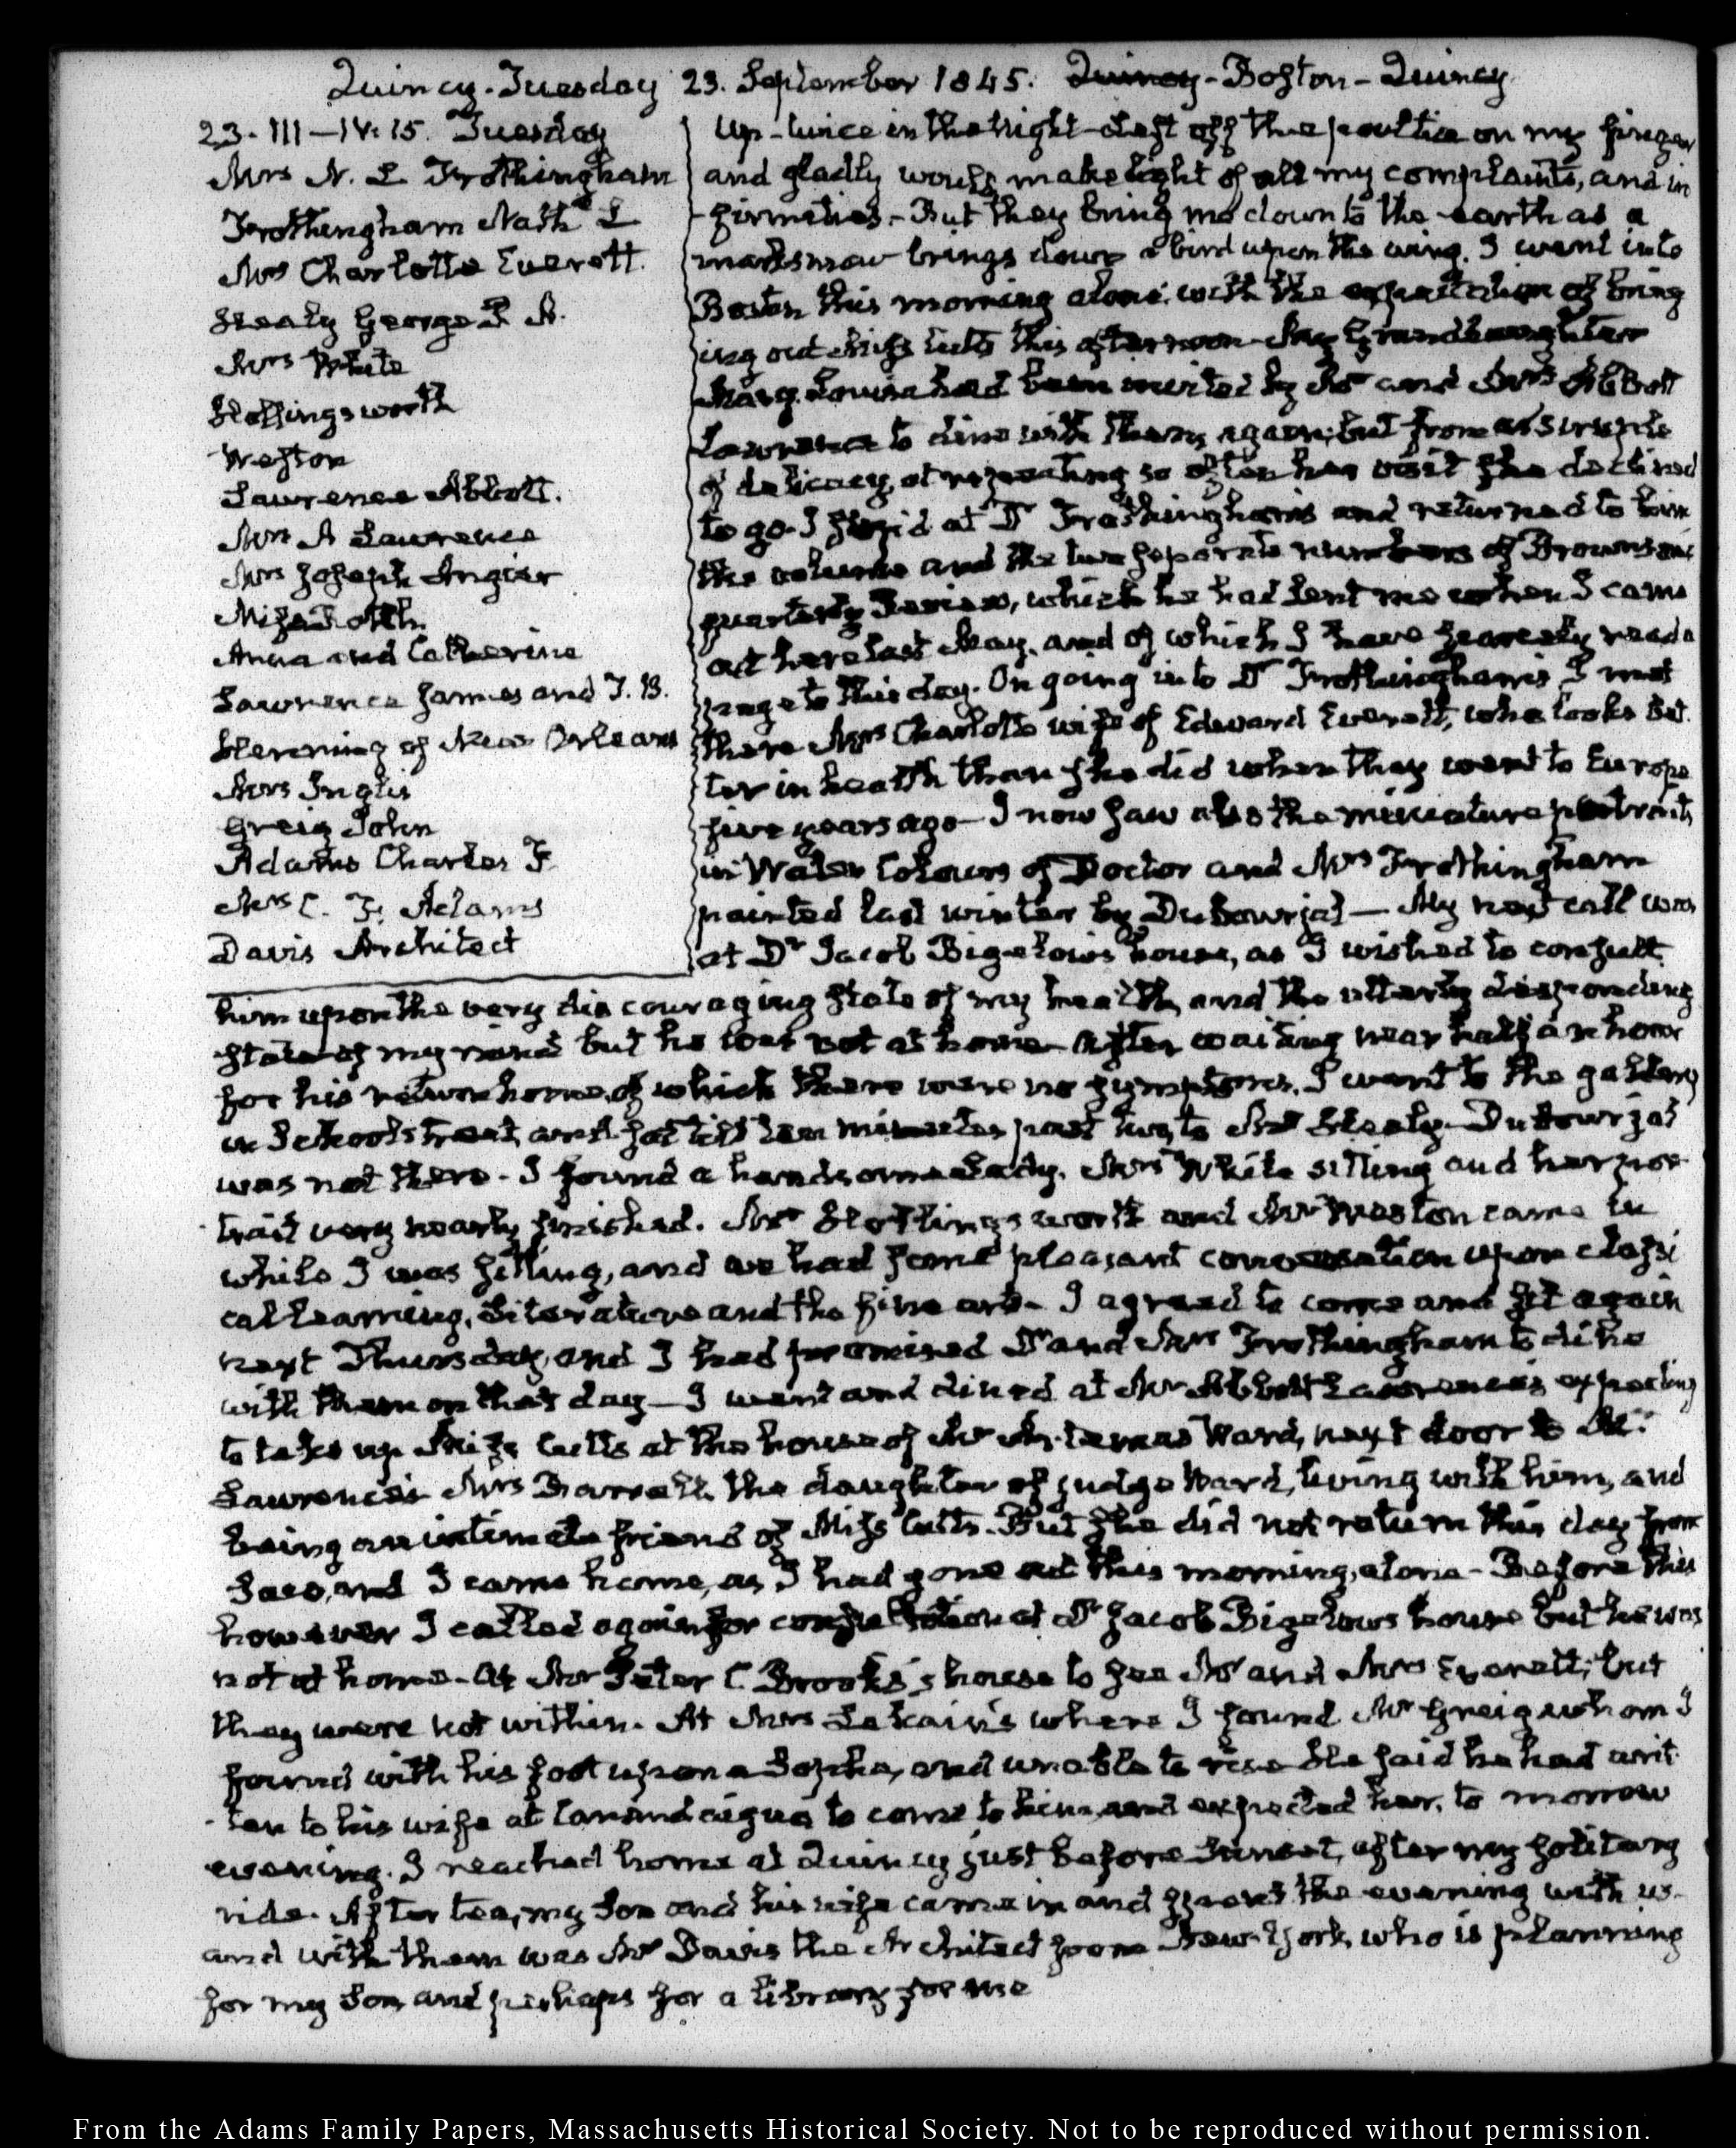 Quincy - Tuesday 23. September 1845. Quincy - Boston - Quincy
23. III — IV: 15. Tuesday
Mrs N. L Frothingham
Frothingham Nath! L
Mrs Charlotte Everett.
Healy George P. A.
Mrs White
Hollingsworth
Weston
Lawrence Abbott.
Mrs A Lawrence
Mrs Joseph Angier
Miss Roth
Anna and Catherine
Lawrence James and T. B.
Flemming of New Orleans
Mrs Inglis
Greig John
Adams Charles F.
Mrs C. F. Adams
Davis Architect
Up - twice in the Night - Left off the poultice on my finger
and gladly would make light of all my complaints, and in
firmities. - But they bring me down to the earth as a
marksman brings down a bird upon the wing. I went into
Boston this morning alone, with the expectation of bring
ing out Miss Cutts this afternoon - My Granddaughter
Mary Louisa had been invited by Mr and Mrs Abbott
Lawrence to dine with them again; but from a scruple
of delicacy, at repeating so often her visit she declined
to go. I stop'd at Dr Frothingham's and returned to him
the volume and the two separate numbers of Brownson's
quarterly Review, which he had lent me when I came
out here last May, and of which I have scarcely read a
page to this day. On going into Dr Frothingham's I met
there Mrs Charlotte wife of Edward Everett, who looks bet
ter in health than she did when they went to Europe
five years ago - I now saw also the miniature portraits
in Water Colours of Doctor and Mrs Frothingham
painted last winter by Dubourjal — My next call was
at Dr Jacob Bigelow's house, as I wished to consult
him upon the very discouraging state of my health, and the utterly desponding
state of my mind but he was not at home - After waiting near half an hour
for his return home, of which there were no symptoms, I went to the gallery
in School street, and sat till ten minutes past two, to Mr Healy - Dubourjal
was not there - I found a handsome Lady, Mrs White sitting and her por
trait very nearly finished. Mr Hollingsworth and Mr Weston came in
while I was sitting, and we had some pleasant conversation upon classi
cal learning, Literature and the fine arts - I agreed to come and sit again
next Thursday, and I had promised Dr and Mrs Frothingham to dine
with them on that day — I went and dined at Mr Abbott Lawrence's expecting
to take up Miss Cutts at the house of Mr Artemas Ward, next door to Mr
Lawrence's Mrs Barrell the daughter of Judge Ward, living with him, and
being an intimate friend of Miss Cutts. But she did not return this day from
Saco, and I came home, as I had gone out this morning, alone - Before this
however I called again for consultation at Dr Jacob Bigelow's house but he was
not at home - At Mr Peter C. Brooks's house to see Mr and Mrs Everett; but
they were not within. At Mrs Lekain's where I found Mr Greig whom I
found with his foot upon a Sopha, and unable to rise He said he had writ
ten to his wife at Canandaigua to come to him, and expected her, to morrow
evening. I reached home at Quincy just before Sunset, after my solitary
ride. After tea, my Son and his wife came in and spent the evening with us
and with them was Mr Davis the Architect from New-York, who is planning
for my Son, and perhaps for a library for me
From the Adams Family Papers, Massachusetts Historical Society. Not to be reproduced without permission.